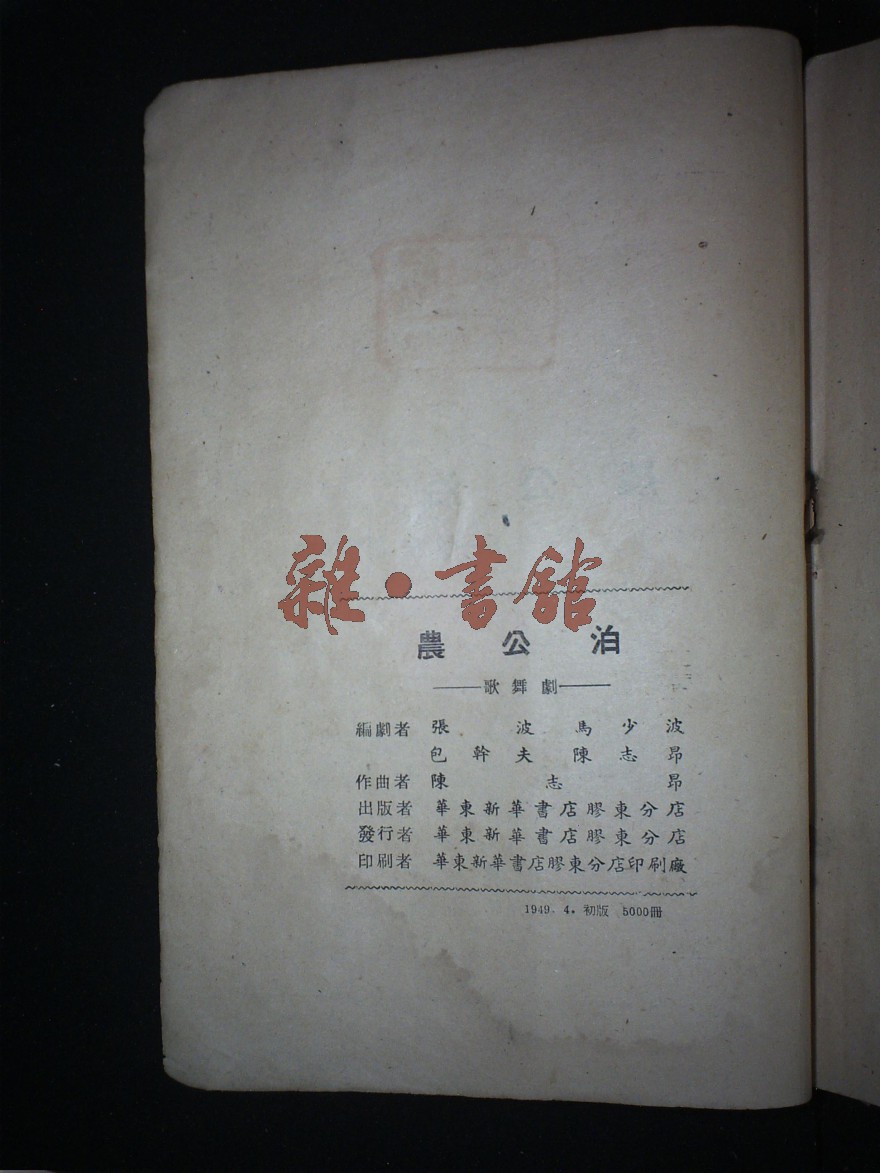 雜·書館
農公泊
——歌舞劇——
編劇者 張波 馬少波
包幹夫 陳志昂
作曲者 陳志昂
出版者 華東新華書店膠東分店
發行者 華東新華書店膠東分店
印刷者 華東新華書店膠東分店印刷廠
1949. 4. 初版 5000冊